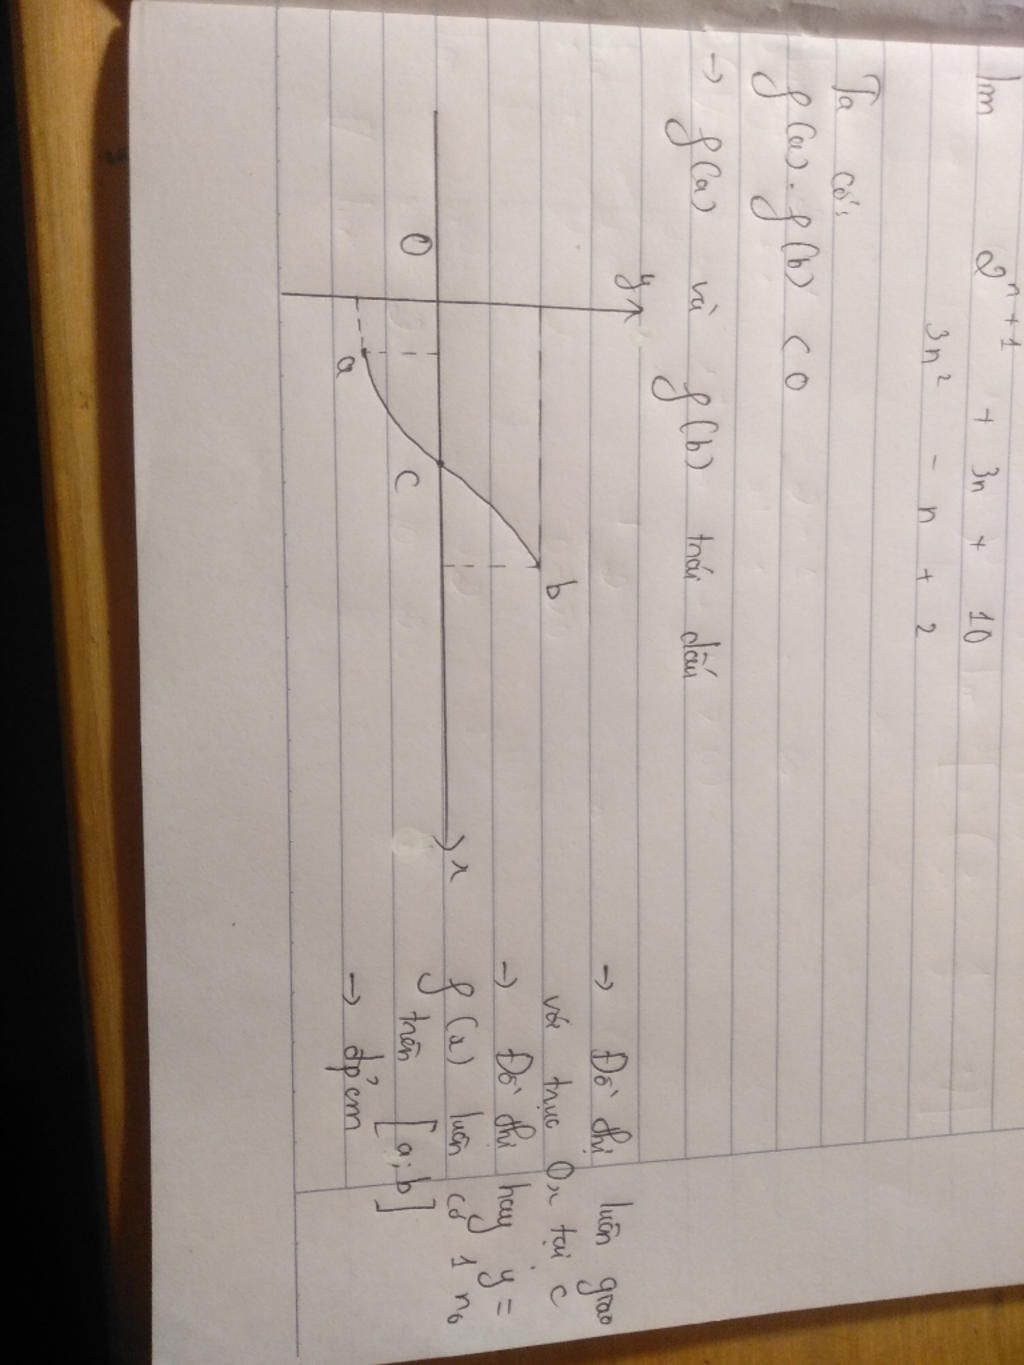 lim 2^{n+1} + 3n + 10
3n² - n + 2
Ta có:
f(a). f(b) < 0
→ f(a) và f(b) trái dấu
y
b
O
C
x
a
→ Đồ thị luôn giao
với trục Ox tại c
→ Đồ thị hay y =
f(x) luôn có 1 no
trên [a; b]
→ đpcm